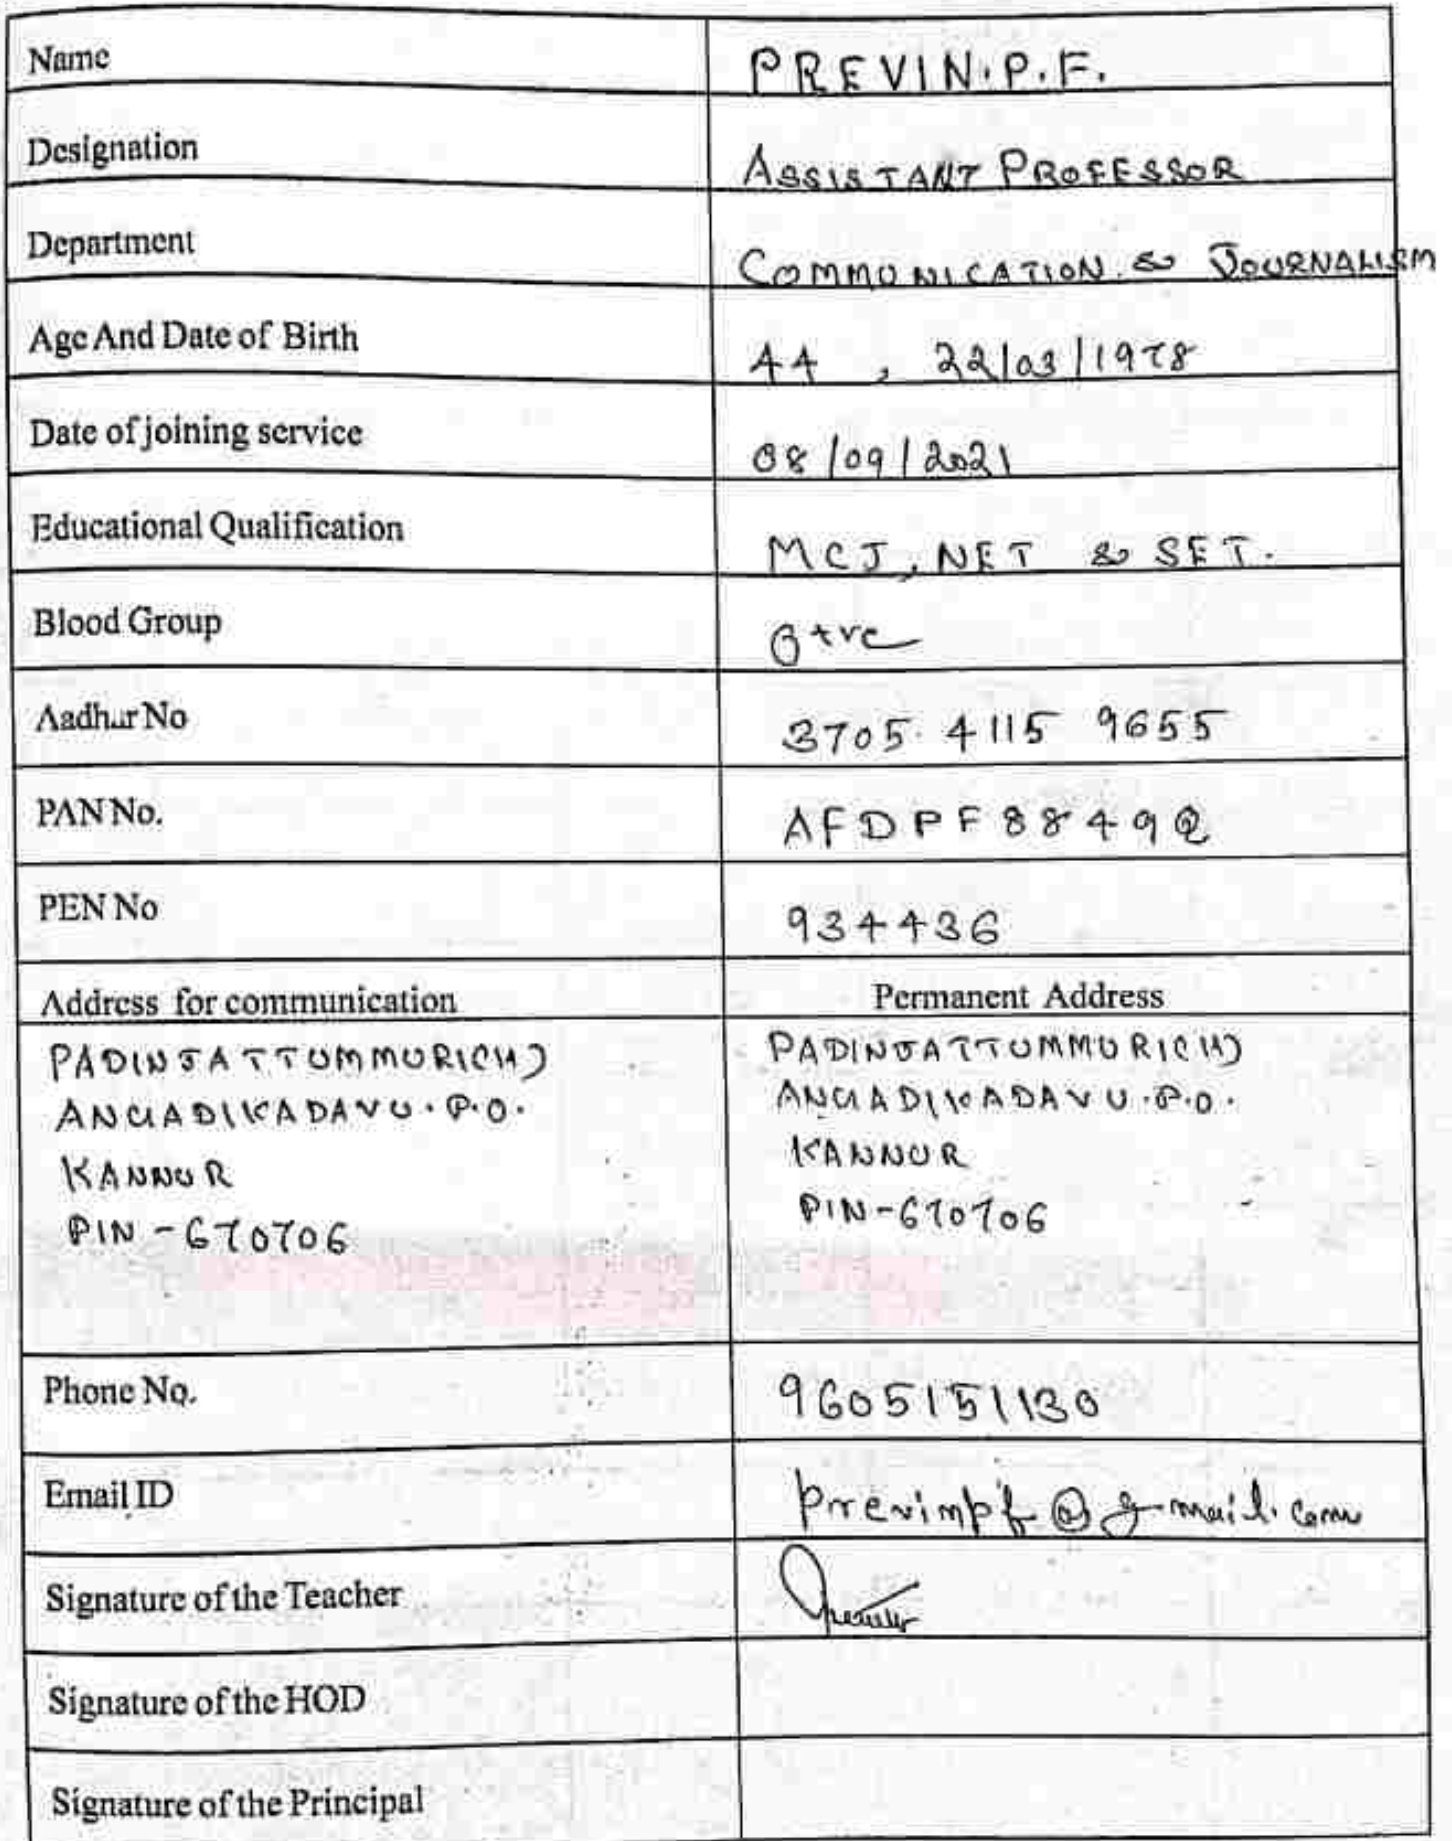 Name PREVIN.P.F.
Designation ASSISTANT PROFESSOR
Department COMMUNICATION & JOURNALISM
Age And Date of Birth 44 , 22/03/1978
Date of joining service 08/09/2021
Educational Qualification MCJ, NET & SET.
Blood Group +ve
Aadhar No 3705 4115 9655
PAN No. AFDPF8849Q
PEN No 934436
Address for communication Permanent Address
PADINJATTUMMURI(H) PADINJATTUMMURI(H)
ANGADIKADAVU.P.O. ANGADIKADAVU.P.O.
KANNUR KANNUR
PIN-670706 PIN-670706
Phone No. 9605151130
Email ID previnpf@gmail.com
Signature of the Teacher
Signature of the HOD
Signature of the Principal